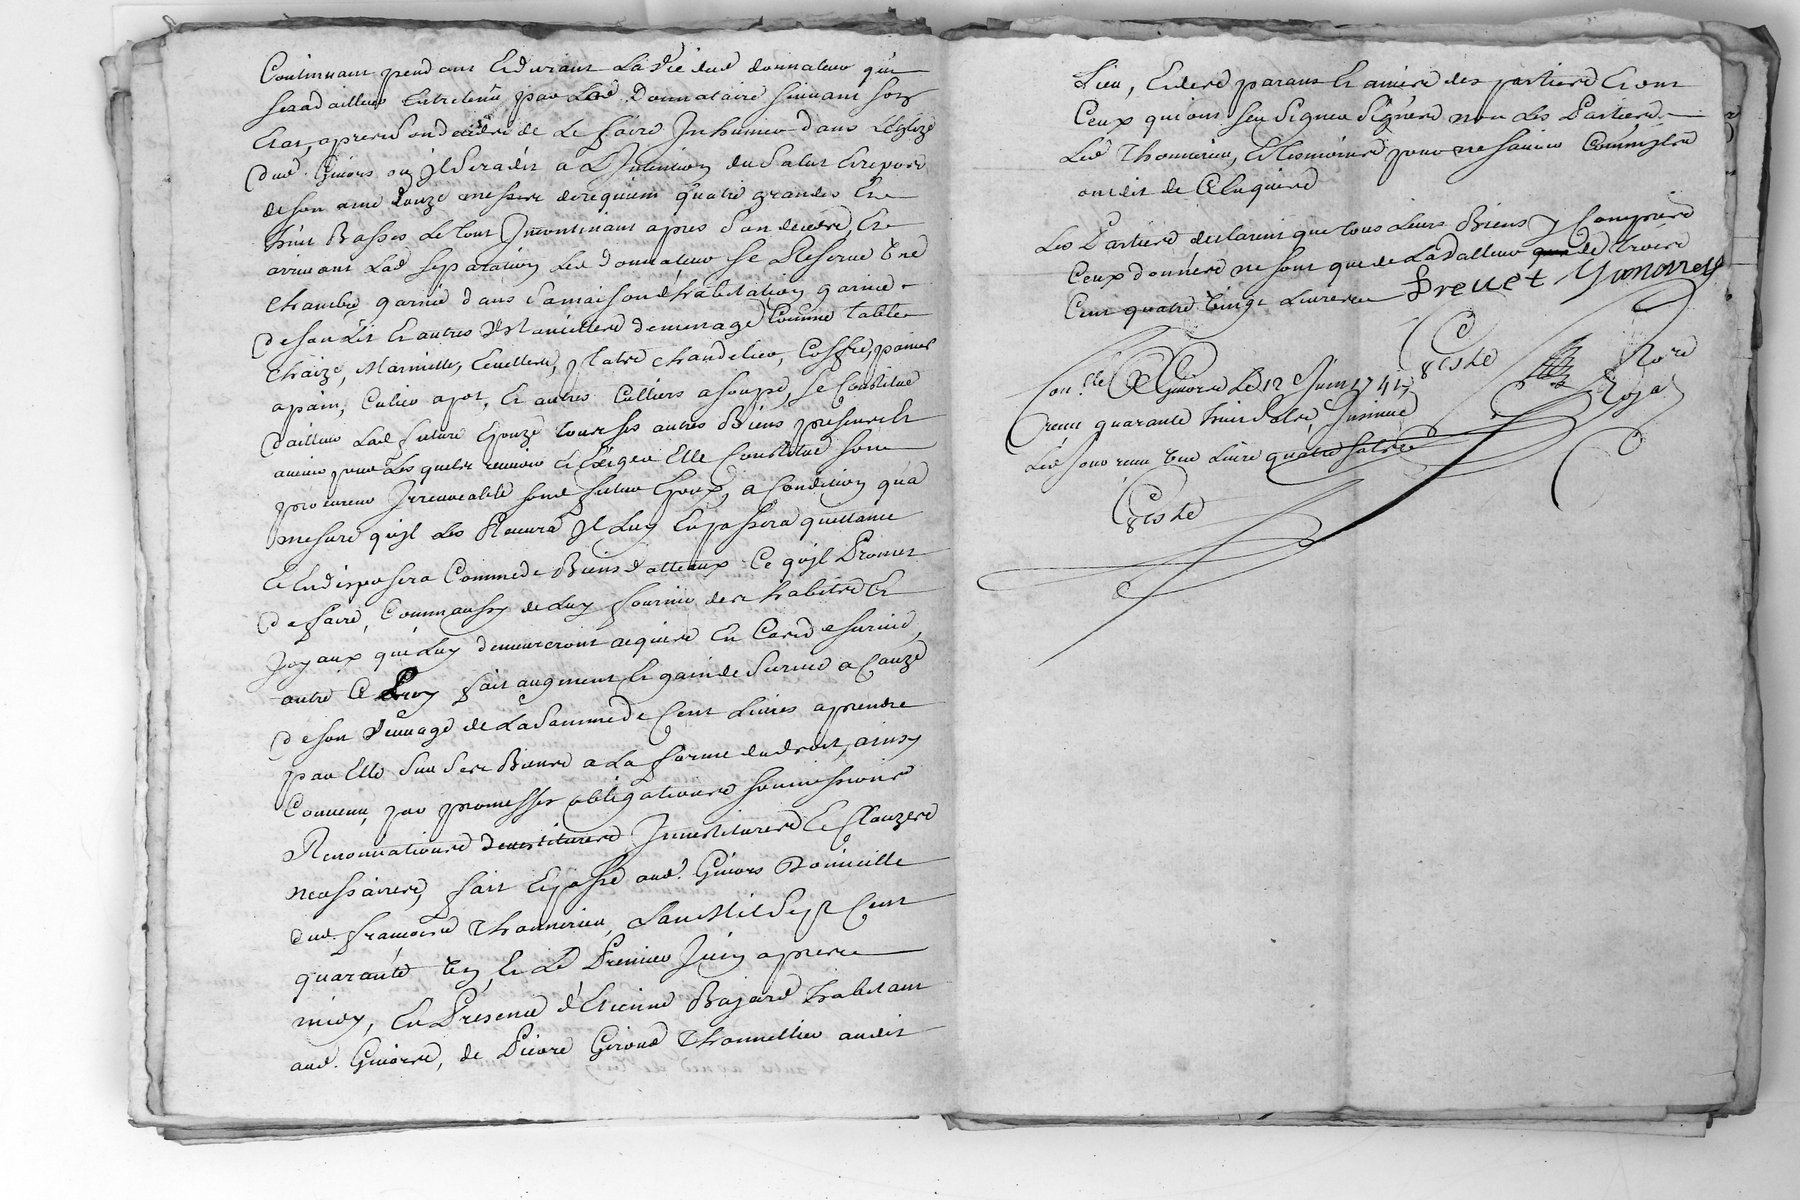 Continuant pendant Et durant La vie dud donnateur qui
sera dailleurs Entretenu par Lad Donnataire suivant son
Etat, apres son deces de Le faire Inhumer dans L'Eglize
dud. Givors ou Il sera dit a L'Intention du Salut Et repos
de son ame douze messes de requiem quatre grandes Et
huit Basses Le tout Incontinant apres son deces, Et
arrivant Lad separation Led donnateur se Reserve Une
Chambre garnie dans sa maison d'habitation garnie
de son Lit Et autres Ustancilles de menage Comme table
Chaize, Marmitte, Cuilliere, platre Chandelier, Coffre, panier
a pain, Culier a pot, Et autres Culliers a soupe, se Constitue
dailleur Lad future Epouze tous ses autres Biens presents Et
avenir pour Lesquels recevoir Et Exiger Elle Constitue pour
procureur Irrevocable sond futur Epoux, a Condition qua
mesure quil Les Recevra Il Luy En passera quittance
Et En disposera Comme de Biens dotteaux Ce quil Promet
de faire, Comm aussy de Luy fournir des habits Et
Joyaux qui Luy demeureront acquis En Cas de survie,
outre Ce Luy fait augment Et gain de survie a Cauze
de son Veuvage de La Somme de Cent Livres a prendre
par Elle Sur Ses Biens a La forme du droit, ainsy
Convenu, par promesses obligations soumissions
Renonnations devestitures Investitures Et Clauzes
necessaires, fait Et passé aud. Givors Domicille
dud. françois Thonnerieu, L'an Mil Sept Cent
quarante Un Et Le Premier Juin apres
midy, En Presence d'Etienne Bajard habitant
aud. Givors, de Pierre Giroud Thonnellier audit
Lieu, Et des parans Et amis des parties Et ont
Ceux qui ont seu Signer Signés non Les Parties
Led Thonnerieu, Et temoins pour ne savoir Comm ils
ont dit de Ce Enquis
Les Parties declarent que tous Leurs Biens y Compris
Ceux donnés ne sont que de La Valleur de trois
Cent quatre Vingt Livres Prevet
Con.lle A Givors Le 12 Juin 1741,
reçu quarante huit sols, Insinué
Led Jour reçu Une Livre quatre sols
Nore
Royal